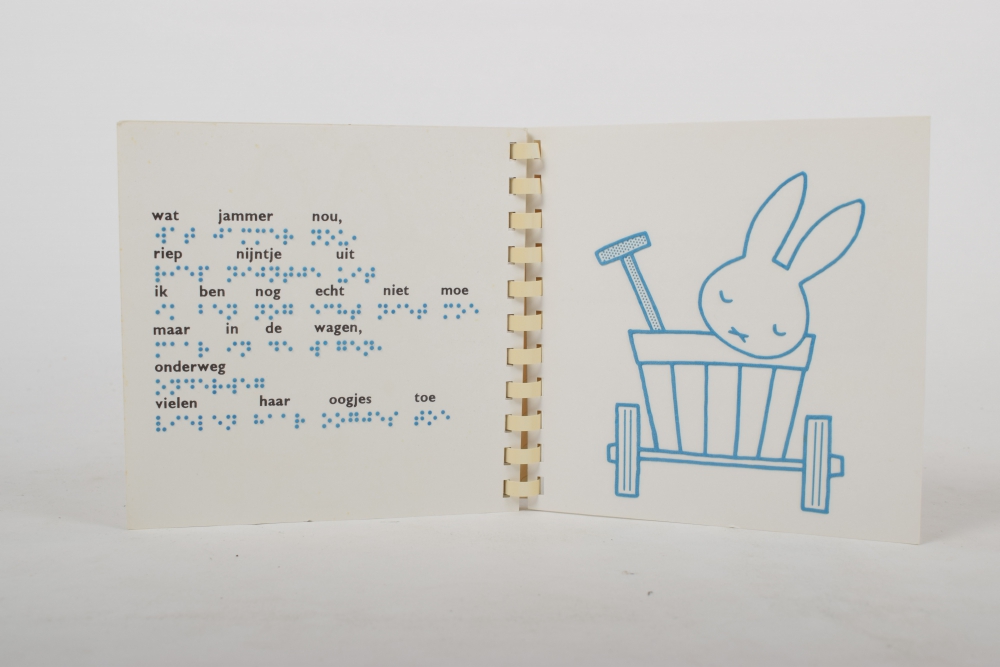 wat jammer nou,
riep nijntje uit
ik ben nog echt niet moe
maar in de wagen,
onderweg
vielen haar oogjes toe